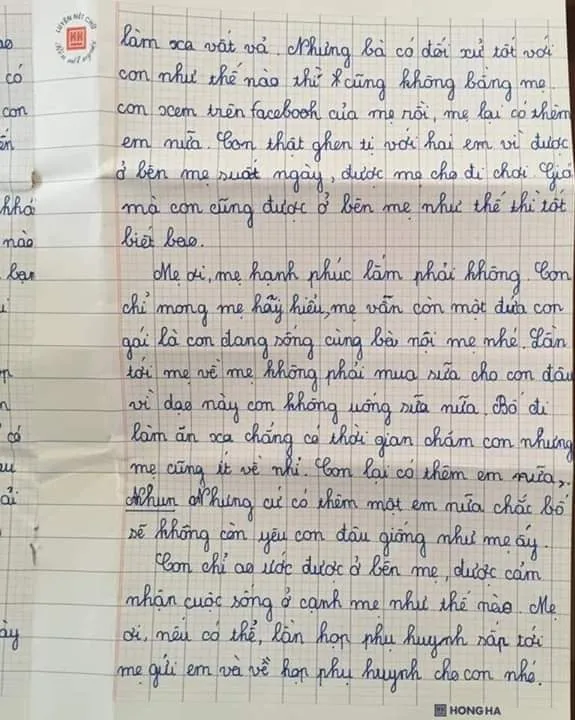 LUYỆN NÉT CHỮ
làm xa vất vả. Nhưng bà có đối xử tốt với
có
con như thế nào thì cũng không bằng mẹ.
con
con xem trên facebook của mẹ rồi, mẹ lại có thêm
em nữa. Con thật ghen tị với hai em vì được
ở bên mẹ suốt ngày, được mẹ cho đi chơi. Giá
khá
mà con cũng được ở bên mẹ như thế thì tốt
nào
biết bao.
bạn
Mẹ ơi, mẹ hạnh phúc lắm phải không. Con
chỉ mong mẹ hãy hiểu, mẹ vẫn còn một đứa con
gái là con đang sống cùng bà nội mẹ nhé. Lần
tới mẹ về mẹ không phải mua sữa cho con đâu
vì dạo này con không uống sữa nữa. Bố đi
có
làm ăn xa chẳng có thời gian chăm con nhưng
mẹ cũng ít về nhỉ. Con lại có thêm em nữa,.
ải
Nhun Nhưng cứ có thêm một em nữa chắc bố
sẽ không còn yêu con đâu giống như mẹ ấy.
Con chỉ ao ước được ở bên mẹ, được cảm
nhận cuộc sống ở cạnh mẹ như thế nào. Mẹ
ày
ơi, nếu có thể, lần họp phụ huynh sắp tới
mẹ gửi em và về họp phụ huynh cho con nhé.
HONG HA